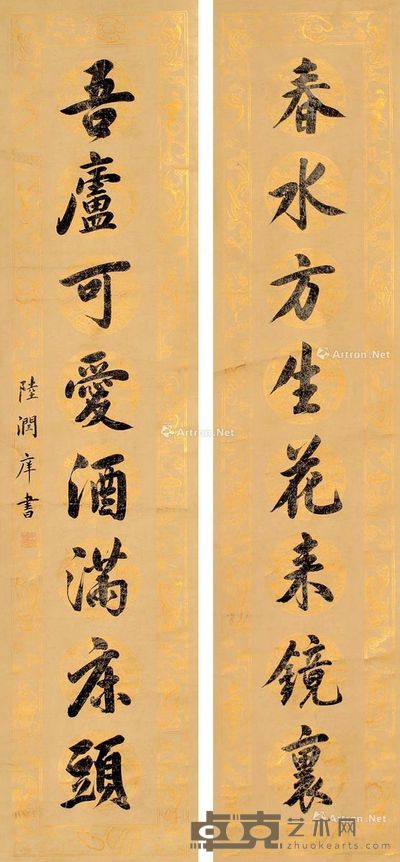 春水方生花来鏡裏
吾廬可愛酒滿床頭
陸潤庠書
Artron.Net
Artron.Net
Artron.Net
Artron.Net
卓克艺术网
zhuokearts.com